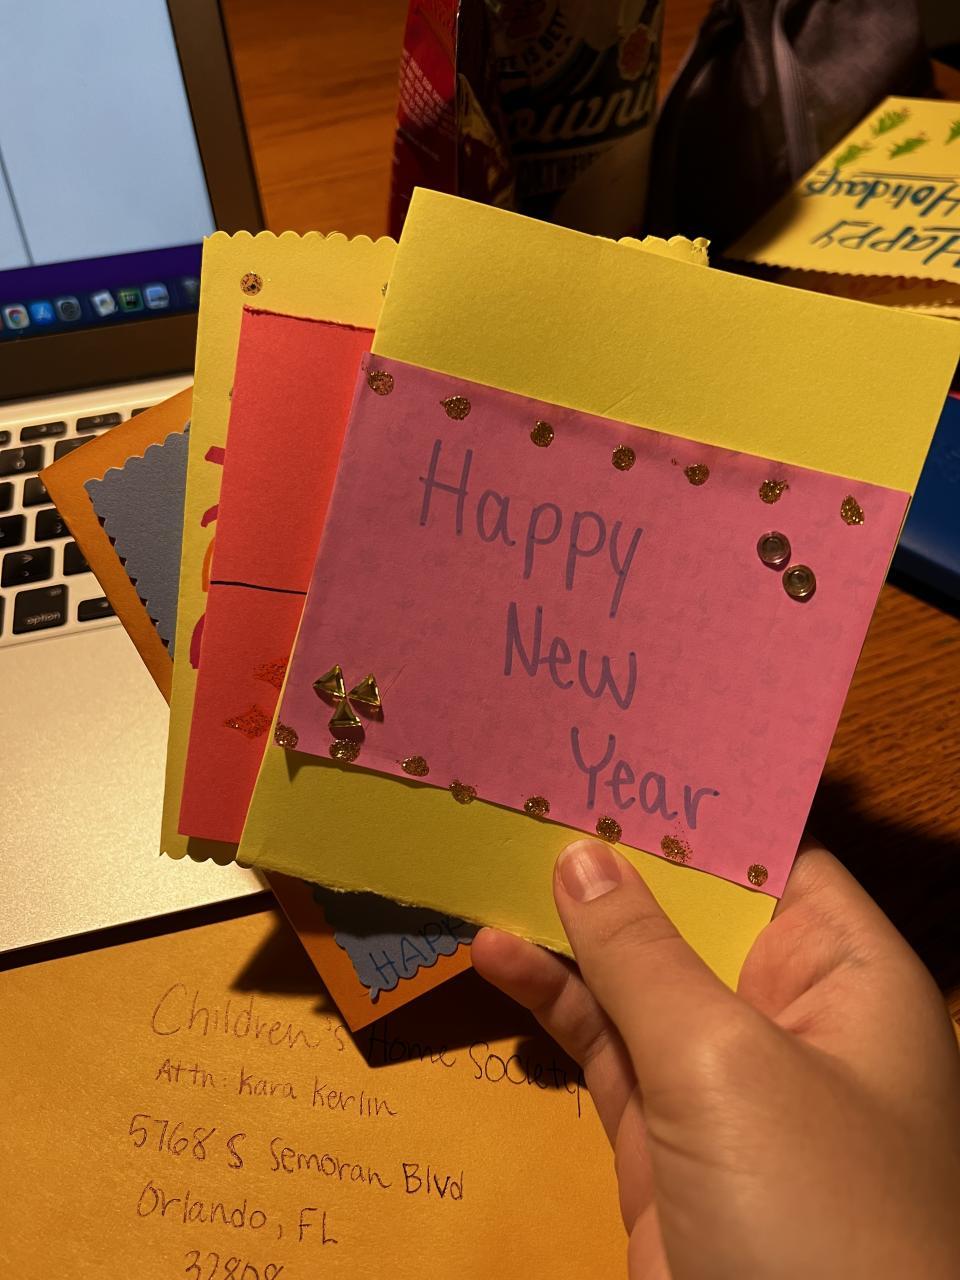 Happy
New
Year
HAPP
Children's Home Society
Attn: Kara Kerlin
5768 S Semoran Blvd
Orlando, FL
32808
Happy
Holidays
option